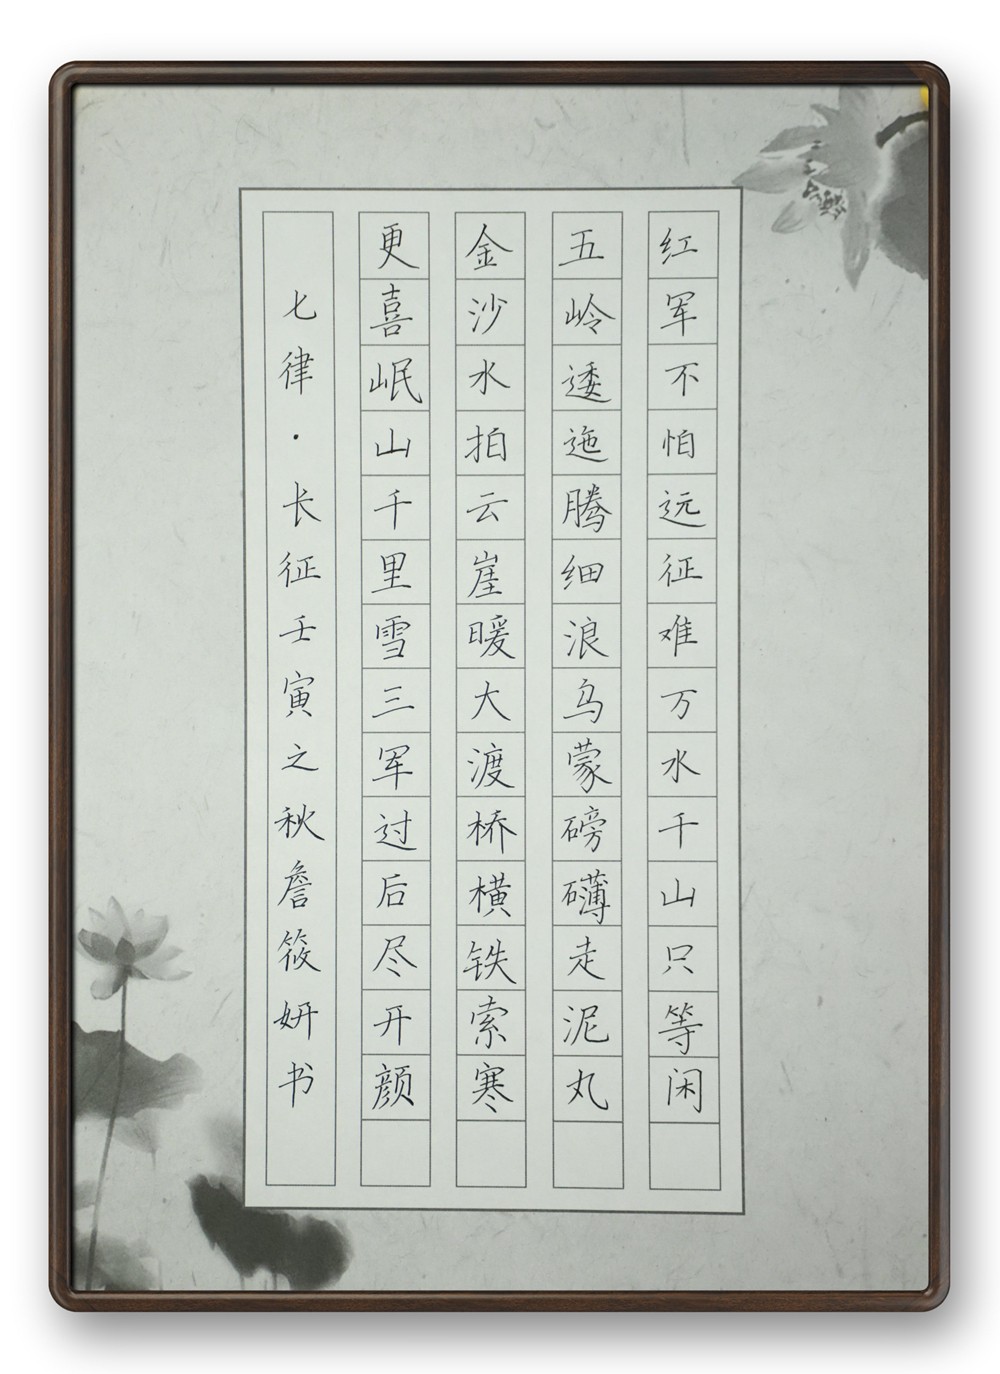 红军不怕远征难万水千山只等闲
五岭逶迤腾细浪乌蒙磅礴走泥丸
金沙水拍云崖暖大渡桥横铁索寒
更喜岷山千里雪三军过后尽开颜
七律·长征壬寅之秋詹筱妍书